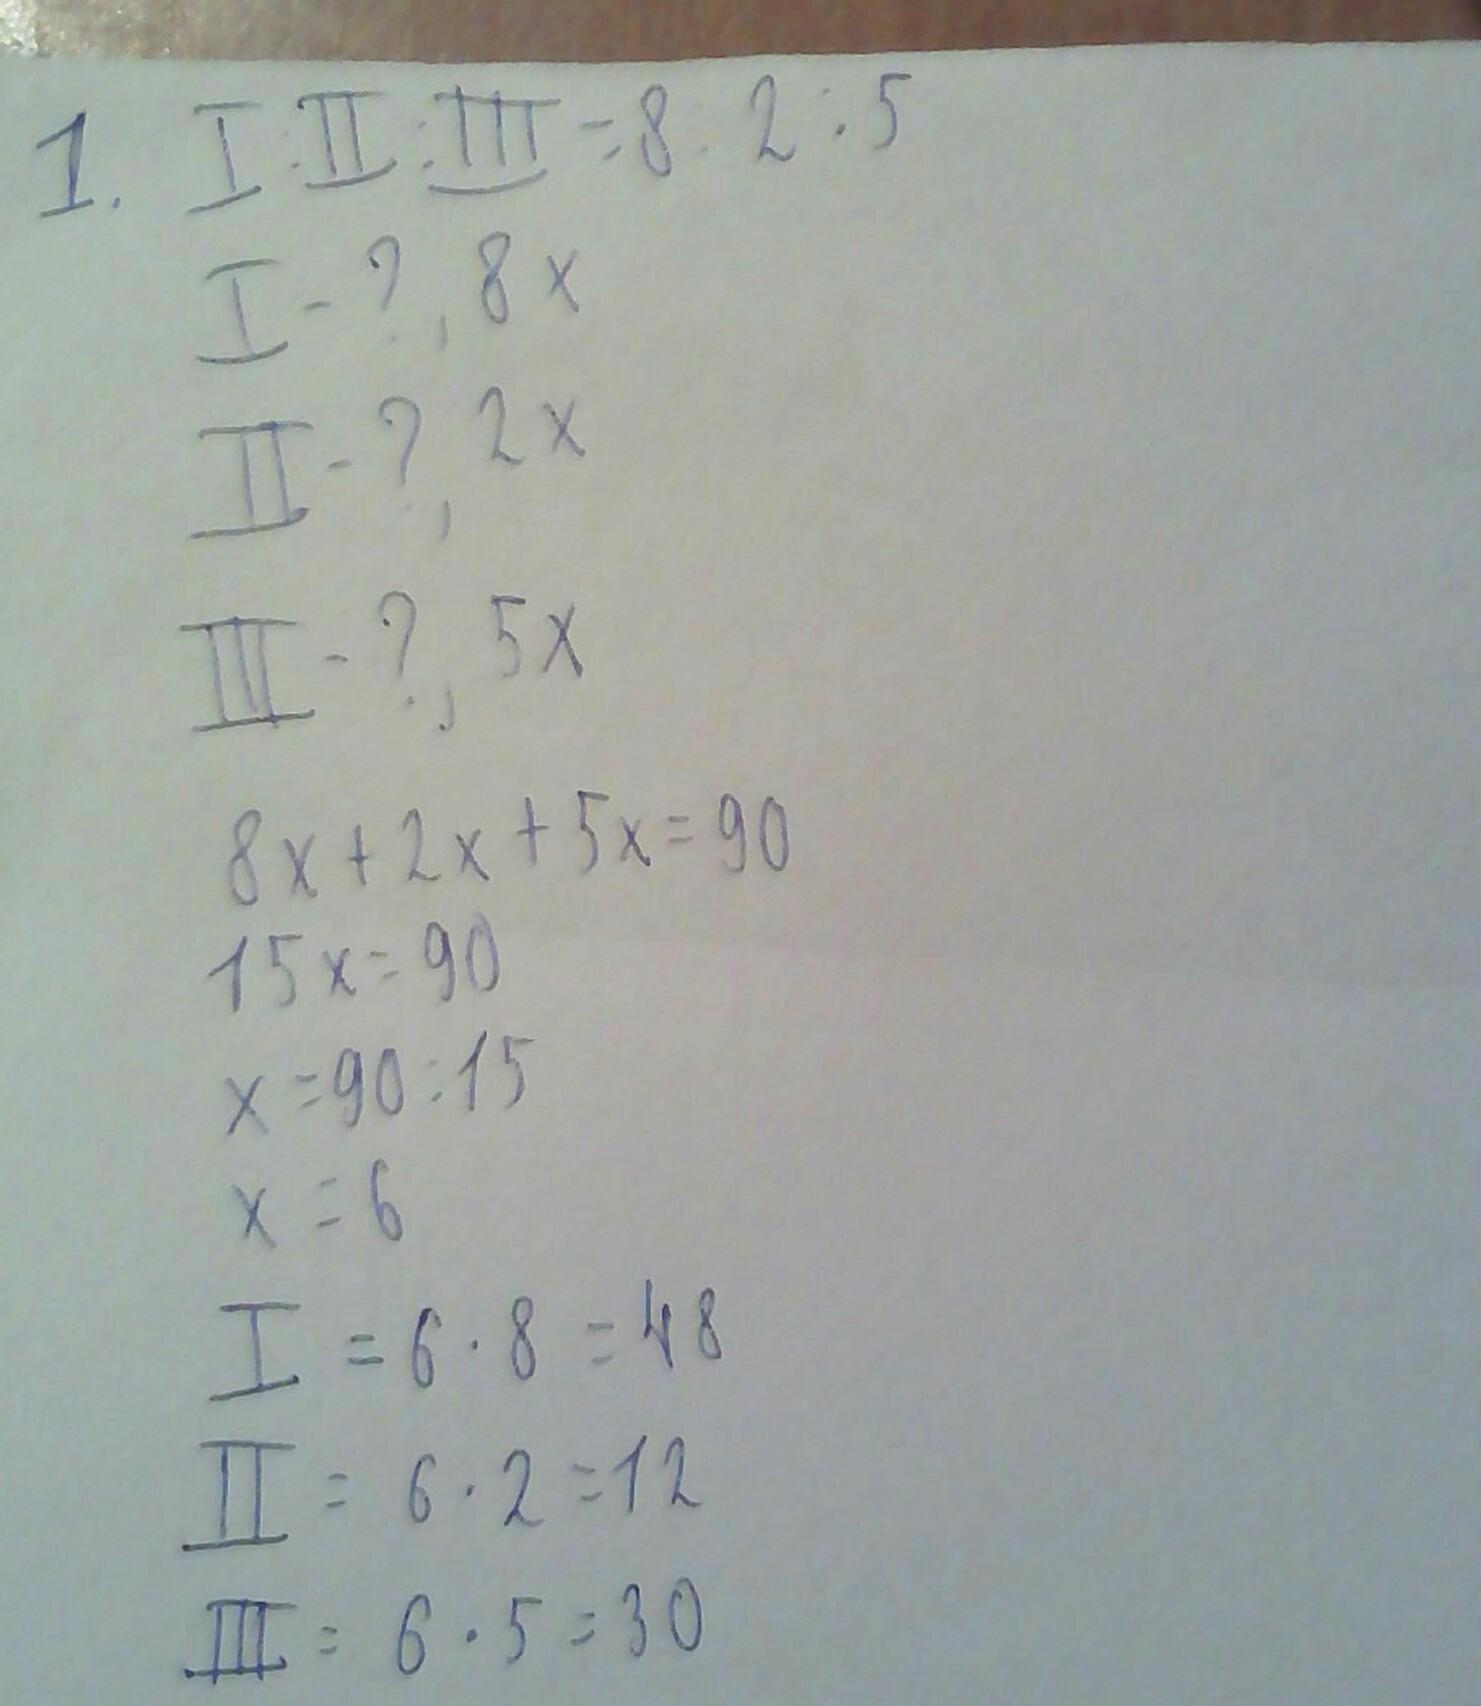 1. I : II : III = 8 : 2 : 5
I - ?, 8x
II - ?, 2x
III - ?, 5x
8x + 2x + 5x = 90
15x = 90
x = 90 : 15
x = 6
I = 6 · 8 = 48
II = 6 · 2 = 12
III = 6 · 5 = 30